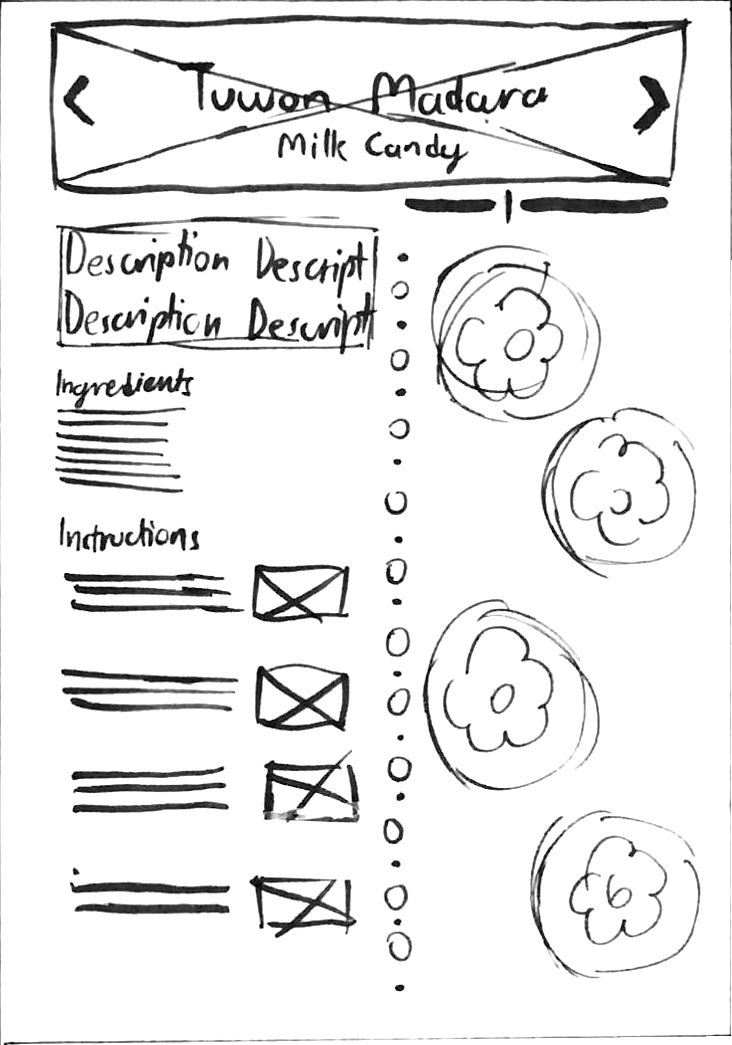 Tuwon Madara
Milk Candy
Description Descript
Description Descript
Ingredients
Instructions